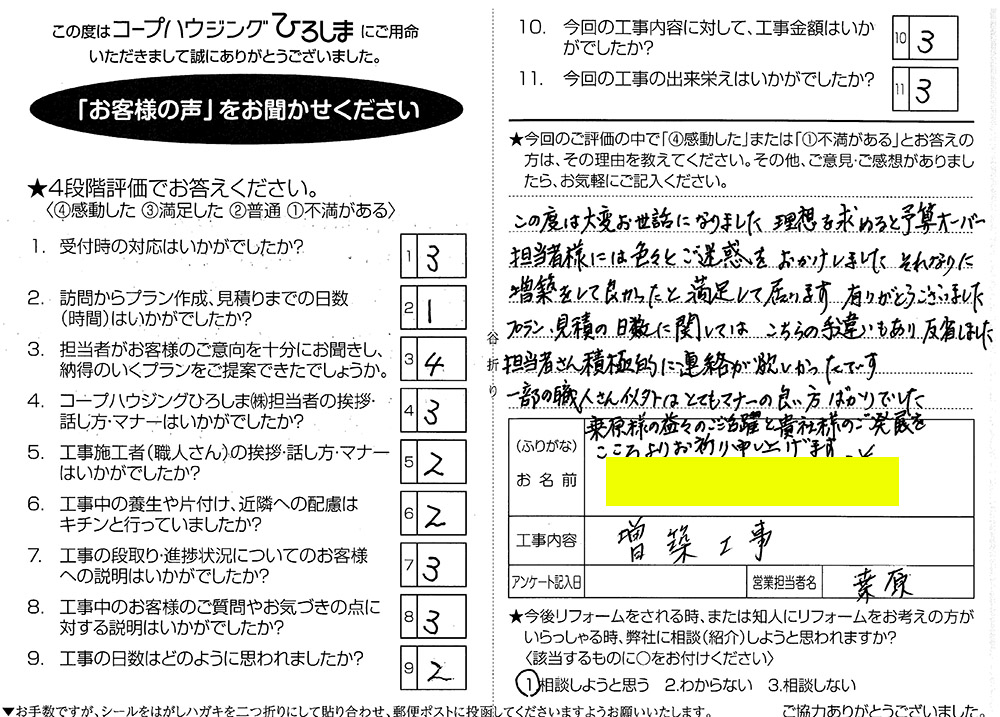 この度はコープハウジングひろしまにご用命
いただきまして誠にありがとうございました。
「お客様の声」をお聞かせください
★4段階評価でお答えください。
〈④感動した ③満足した ②普通 ①不満がある〉
1. 受付時の対応はいかがでしたか?
1 3
2. 訪問からプラン作成、見積りまでの日数
(時間)はいかがでしたか?
2 1
3. 担当者がお客様のご意向を十分にお聞きし、
納得のいくプランをご提案できたでしょうか。
3 4
4. コープハウジングひろしま㈱担当者の挨拶・
話し方・マナーはいかがでしたか?
4 3
5. 工事施工者(職人さん)の挨拶・話し方・マナー
はいかがでしたか?
5 2
6. 工事中の養生や片付け、近隣への配慮は
キチンと行っていましたか?
6 2
7. 工事の段取り・進捗状況についてのお客様
への説明はいかがでしたか?
7 3
8. 工事中のお客様のご質問やお気づきの点に
対する説明はいかがでしたか?
8 3
9. 工事の日数はどのように思われましたか?
9 2
▼お手数ですが、シールをはがしハガキを二つ折りにして貼り合わせ、郵便ポストに投函してくださいますようお願いいたします。
谷折り
10. 今回の工事内容に対して、工事金額はいか
がでしたか?
10 3
11. 今回の工事の出来栄えはいかがでしたか?
11 3
★今回のご評価の中で「④感動した」または「①不満がある」とお答えの
方は、その理由を教えてください。その他、ご意見・ご感想がありまし
たら、お気軽にご記入ください。
この度は大変お世話になりました 理想を求めると予算オーバー
担当者様には色々とご迷惑をおかけしました それなりに
増築をして良かったと満足して居ります 有りがとうございました
プラン、見積の日数に関しては こちらの手違いもあり反省しました
担当者さん積極的に連絡が欲しかったです
一部の職人さん以外はとてもマナーの良い方ばかりでした
桑原様の益々のご活躍と貴社様のご発展を
こころよりお祈り申し上げます
(ふりがな)
お名前
工事内容 増築工事
アンケート記入日
営業担当者名 桑原
★今後リフォームをされる時、または知人にリフォームをお考えの方が
いらっしゃる時、弊社に相談(紹介)しようと思われますか?
〈該当するものに○をお付けください〉
1.相談しようと思う 2.わからない 3.相談しない
ご協力ありがとうございました。